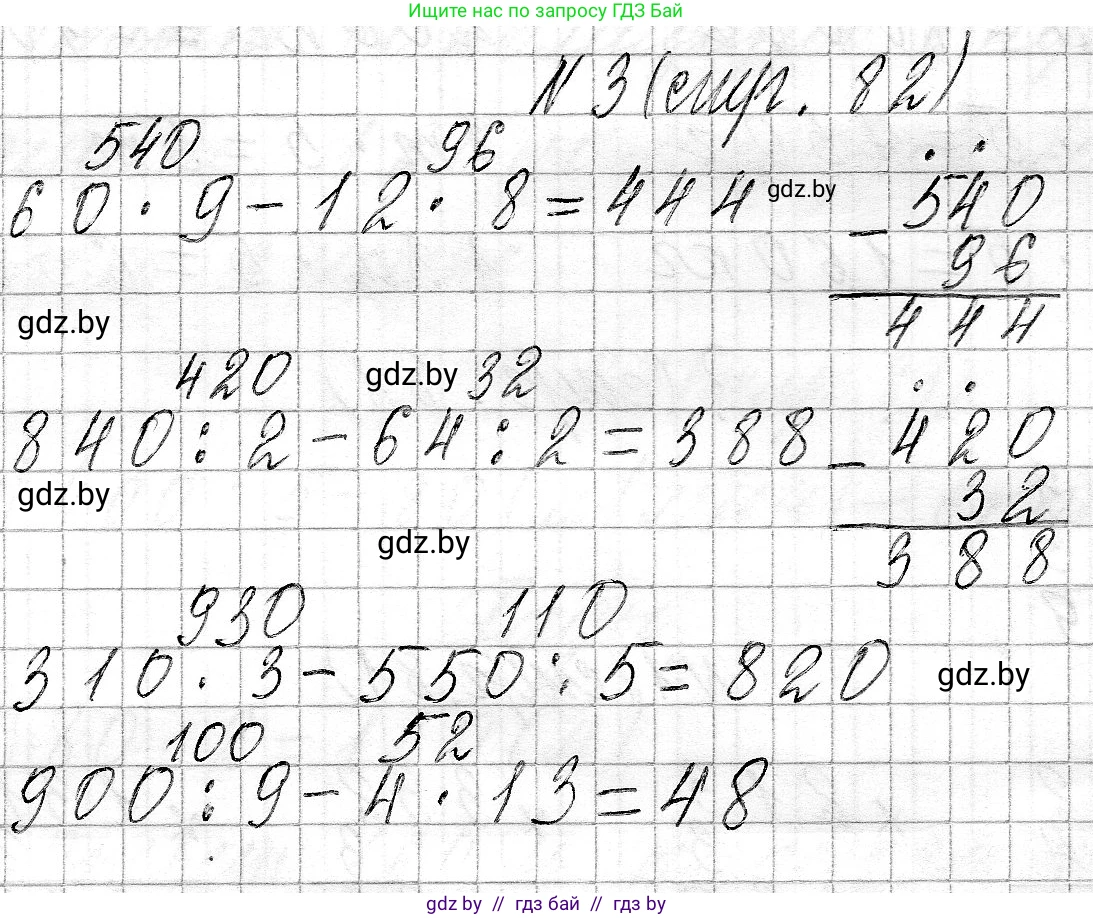 Ищите нас по запросу ГДЗ Бай
N 3 (стр. 82)
540 96
60 · 9 - 12 · 8 = 444 gdz.by - 540
96
gdz.by 444
420 gdz.by 32
840 : 2 - 64 : 2 = 388 - 420
gdz.by 32
gdz.by 388
930 110
310 · 3 - 550 : 5 = 820 gdz.by
100 52
900 : 9 - 4 · 13 = 48
gdz.by // гдз бай // гдз by